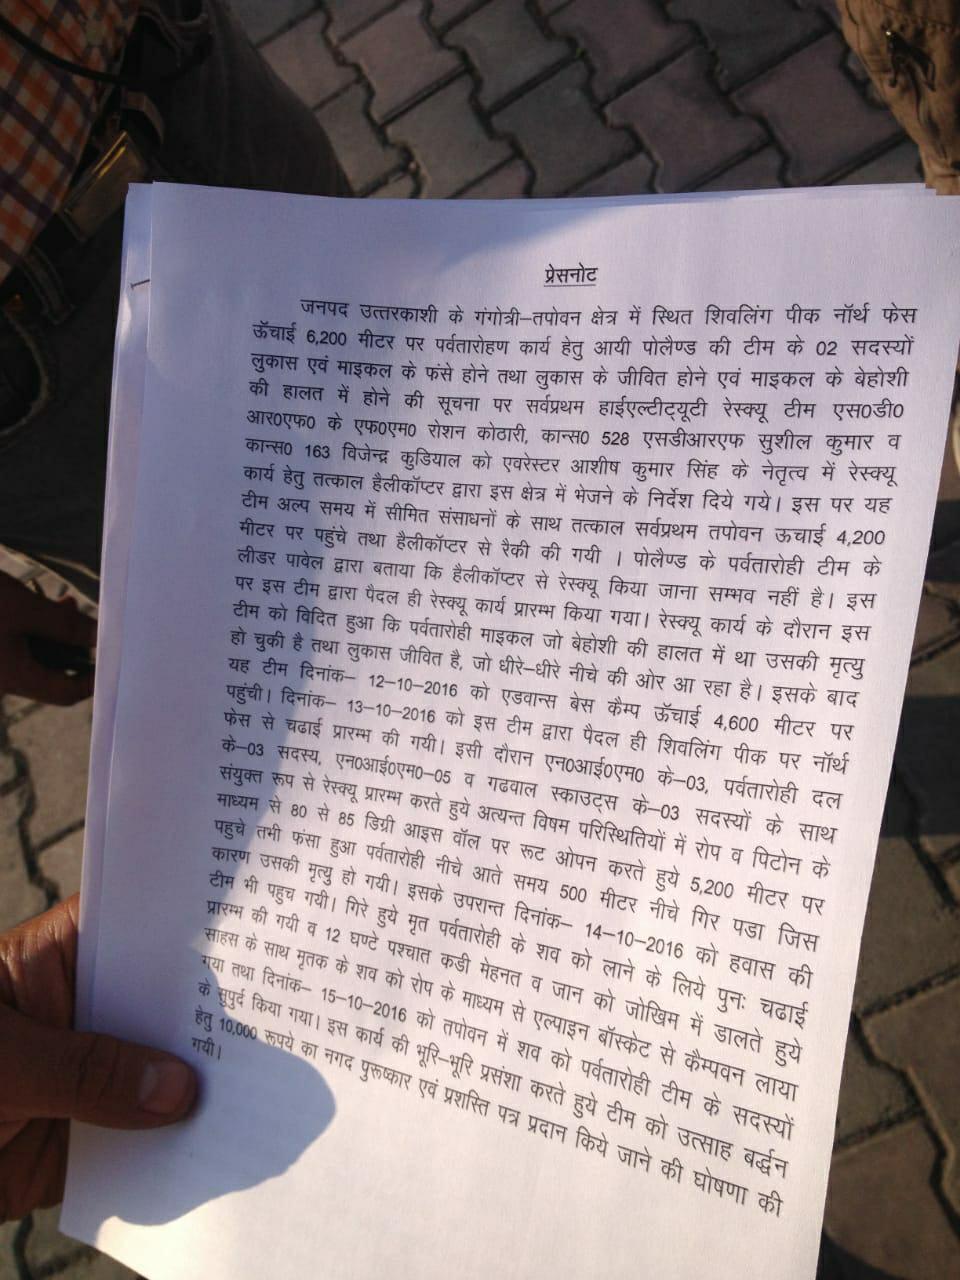 प्रेसनोट
जनपद उत्तरकाशी के गंगोत्री–तपोवन क्षेत्र में स्थित शिवलिंग पीक नॉर्थ फेस
ऊॅचाई 6,200 मीटर पर पर्वतारोहण कार्य हेतु आयी पोलैण्ड की टीम के 02 सदस्यों
लुकास एवं माइकल के फंसे होने तथा लुकास के जीवित होने एवं माइकल के बेहोशी
की हालत में होने की सूचना पर सर्वप्रथम हाईएल्टीट्यूटी रेस्क्यू टीम एस0डी0
आर0एफ0 के एफ0एम0 रोशन कोठारी, कान्स0 528 एसडीआरएफ सुशील कुमार व
कान्स0 163 विजेन्द्र कुडियाल को एवरेस्टर आशीष कुमार सिंह के नेतृत्व में रेस्क्यू
कार्य हेतु तत्काल हैलीकॉप्टर द्वारा इस क्षेत्र में भेजने के निर्देश दिये गये। इस पर यह
टीम अल्प समय में सीमित संसाधनों के साथ तत्काल सर्वप्रथम तपोवन ऊचाई 4,200
मीटर पर पहुंचे तथा हैलीकॉप्टर से रैकी की गयी । पोलैण्ड के पर्वतारोही टीम के
लीडर पावेल द्वारा बताया कि हैलीकॉप्टर से रेस्क्यू किया जाना सम्भव नहीं है। इस
पर इस टीम द्वारा पैदल ही रेस्क्यू कार्य प्रारम्भ किया गया। रेस्क्यू कार्य के दौरान इस
टीम को विदित हुआ कि पर्वतारोही माइकल जो बेहोशी की हालत में था उसकी मृत्यु
हो चुकी है तथा लुकास जीवित है, जो धीरे–धीरे नीचे की ओर आ रहा है। इसके बाद
यह टीम दिनांक– 12-10-2016 को एडवान्स बेस कैम्प ऊॅचाई 4,600 मीटर पर
पहुंची। दिनांक– 13-10-2016 को इस टीम द्वारा पैदल ही शिवलिंग पीक पर नॉर्थ
फेस से चढाई प्रारम्भ की गयी। इसी दौरान एन0आई0एम0 के–03, पर्वतारोही दल
के–03 सदस्य, एन0आई0एम0–05 व गढवाल स्काउट्स के–03 सदस्यों के साथ
संयुक्त रूप से रेस्क्यू प्रारम्भ करते हुये अत्यन्त विषम परिस्थितियों में रोप व पिटोन के
माध्यम से 80 से 85 डिग्री आइस वॉल पर रूट ओपन करते हुये 5,200 मीटर पर
पहुचे तभी फंसा हुआ पर्वतारोही नीचे आते समय 500 मीटर नीचे गिर पडा जिस
कारण उसकी मृत्यु हो गयी। इसके उपरान्त दिनांक– 14-10-2016 को हवास की
टीम भी पहुच गयी। गिरे हुये मृत पर्वतारोही के शव को लाने के लिये पुनः चढाई
प्रारम्भ की गयी व 12 घण्टे पश्चात कडी मेहनत व जान को जोखिम में डालते हुये
साहस के साथ मृतक के शव को रोप के माध्यम से एल्पाइन बॉस्केट से कैम्पवन लाया
गया तथा दिनांक– 15-10-2016 को तपोवन में शव को पर्वतारोही टीम के सदस्यों
के सुपुर्द किया गया। इस कार्य की भूरि–भूरि प्रसंशा करते हुये टीम को उत्साह बर्द्धन
हेतु 10,000 रूपये का नगद पुरूष्कार एवं प्रशस्ति पत्र प्रदान किये जाने की घोषणा की
गयी।